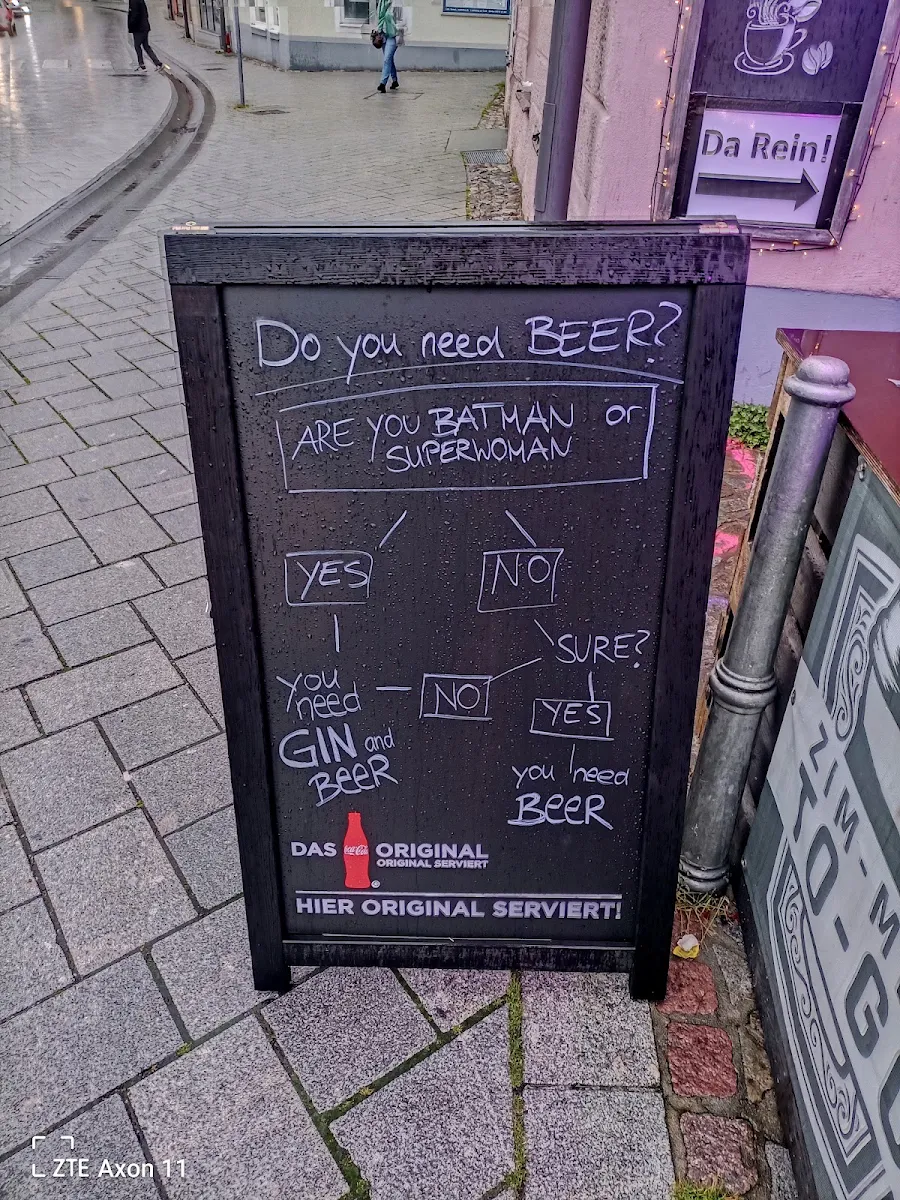 Da Rein!
Do you need BEER?
ARE YOU BATMAN or
SUPERWOMAN
YES
NO
SURE?
you
need
NO
YES
GIN and
BEER
you need
BEER
DAS Coca-Cola ORIGINAL
ORIGINAL SERVIERT
HIER ORIGINAL SERVIERT!
ZIM-M
TO-G
ZTE Axon 11